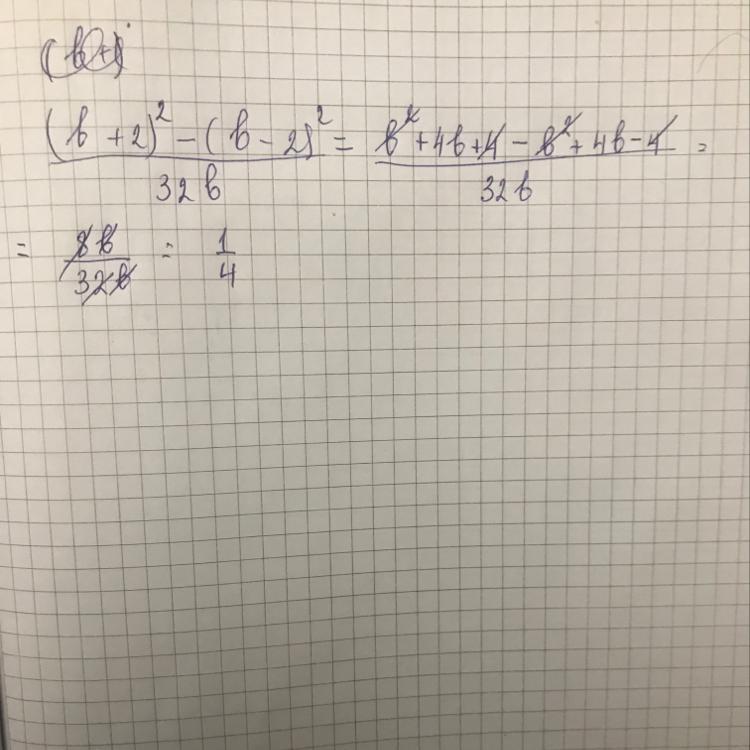 (b+2)² - (b-2)² / 32b = b² + 4b + 4 - b² + 4b - 4 / 32b =
= 8b / 32b = 1 / 4